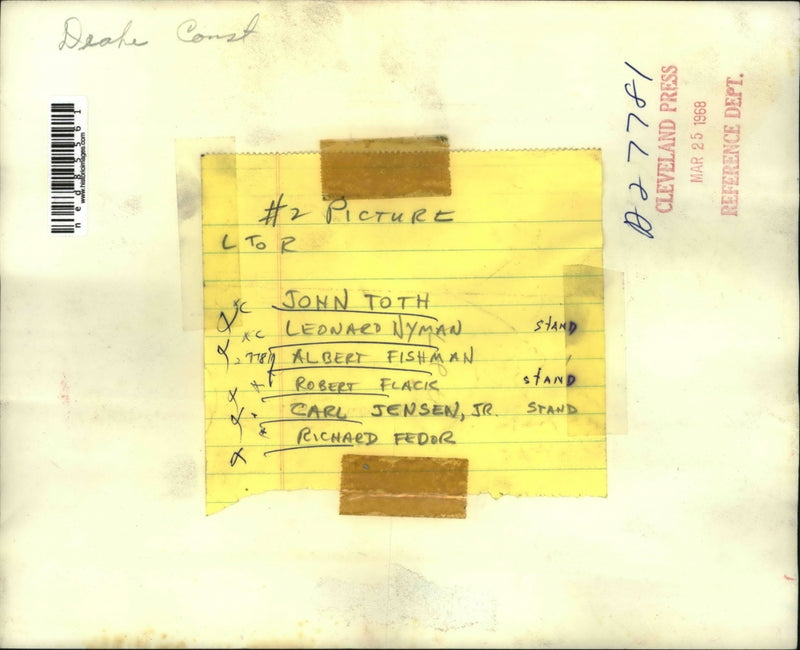 Drake Const
ned85561
www.historicimages.com
D27781
CLEVELAND PRESS
MAR 25 1968
REFERENCE DEPT.
#2 PICTURE
L TO R
JOHN TOTH
LEONARD NYMAN STAND
ALBERT FISHMAN
ROBERT FLACK STAND
CARL JENSEN, JR. STAND
RICHARD FEDOR